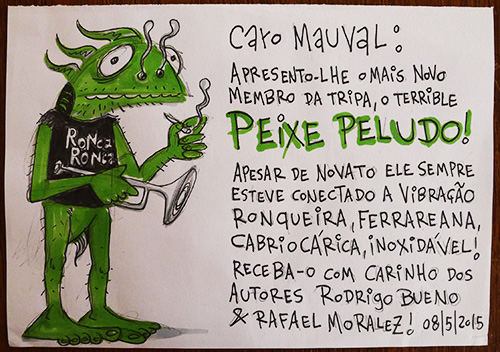 Caro Mauval:
Apresento-lhe o mais novo
membro da tripa, o terrible
PEIXE PELUDO!
Apesar de novato ele sempre
esteve conectado a vibração
ronqueira, ferrareana,
cabriocárica, inoxidável!
Receba-o com carinho dos
autores Rodrigo Bueno
& Rafael Moralez! 08/5/2015
Ronca
Ronca